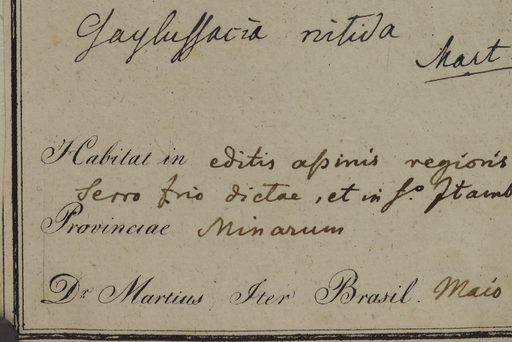 Gaylussacia nitida
Mart
Habitat in editis apinis regionis
Serro frio dictae, et in S.º Itamb
Provinciae Minarum
Dr. Martius Iter Brasil. Maio